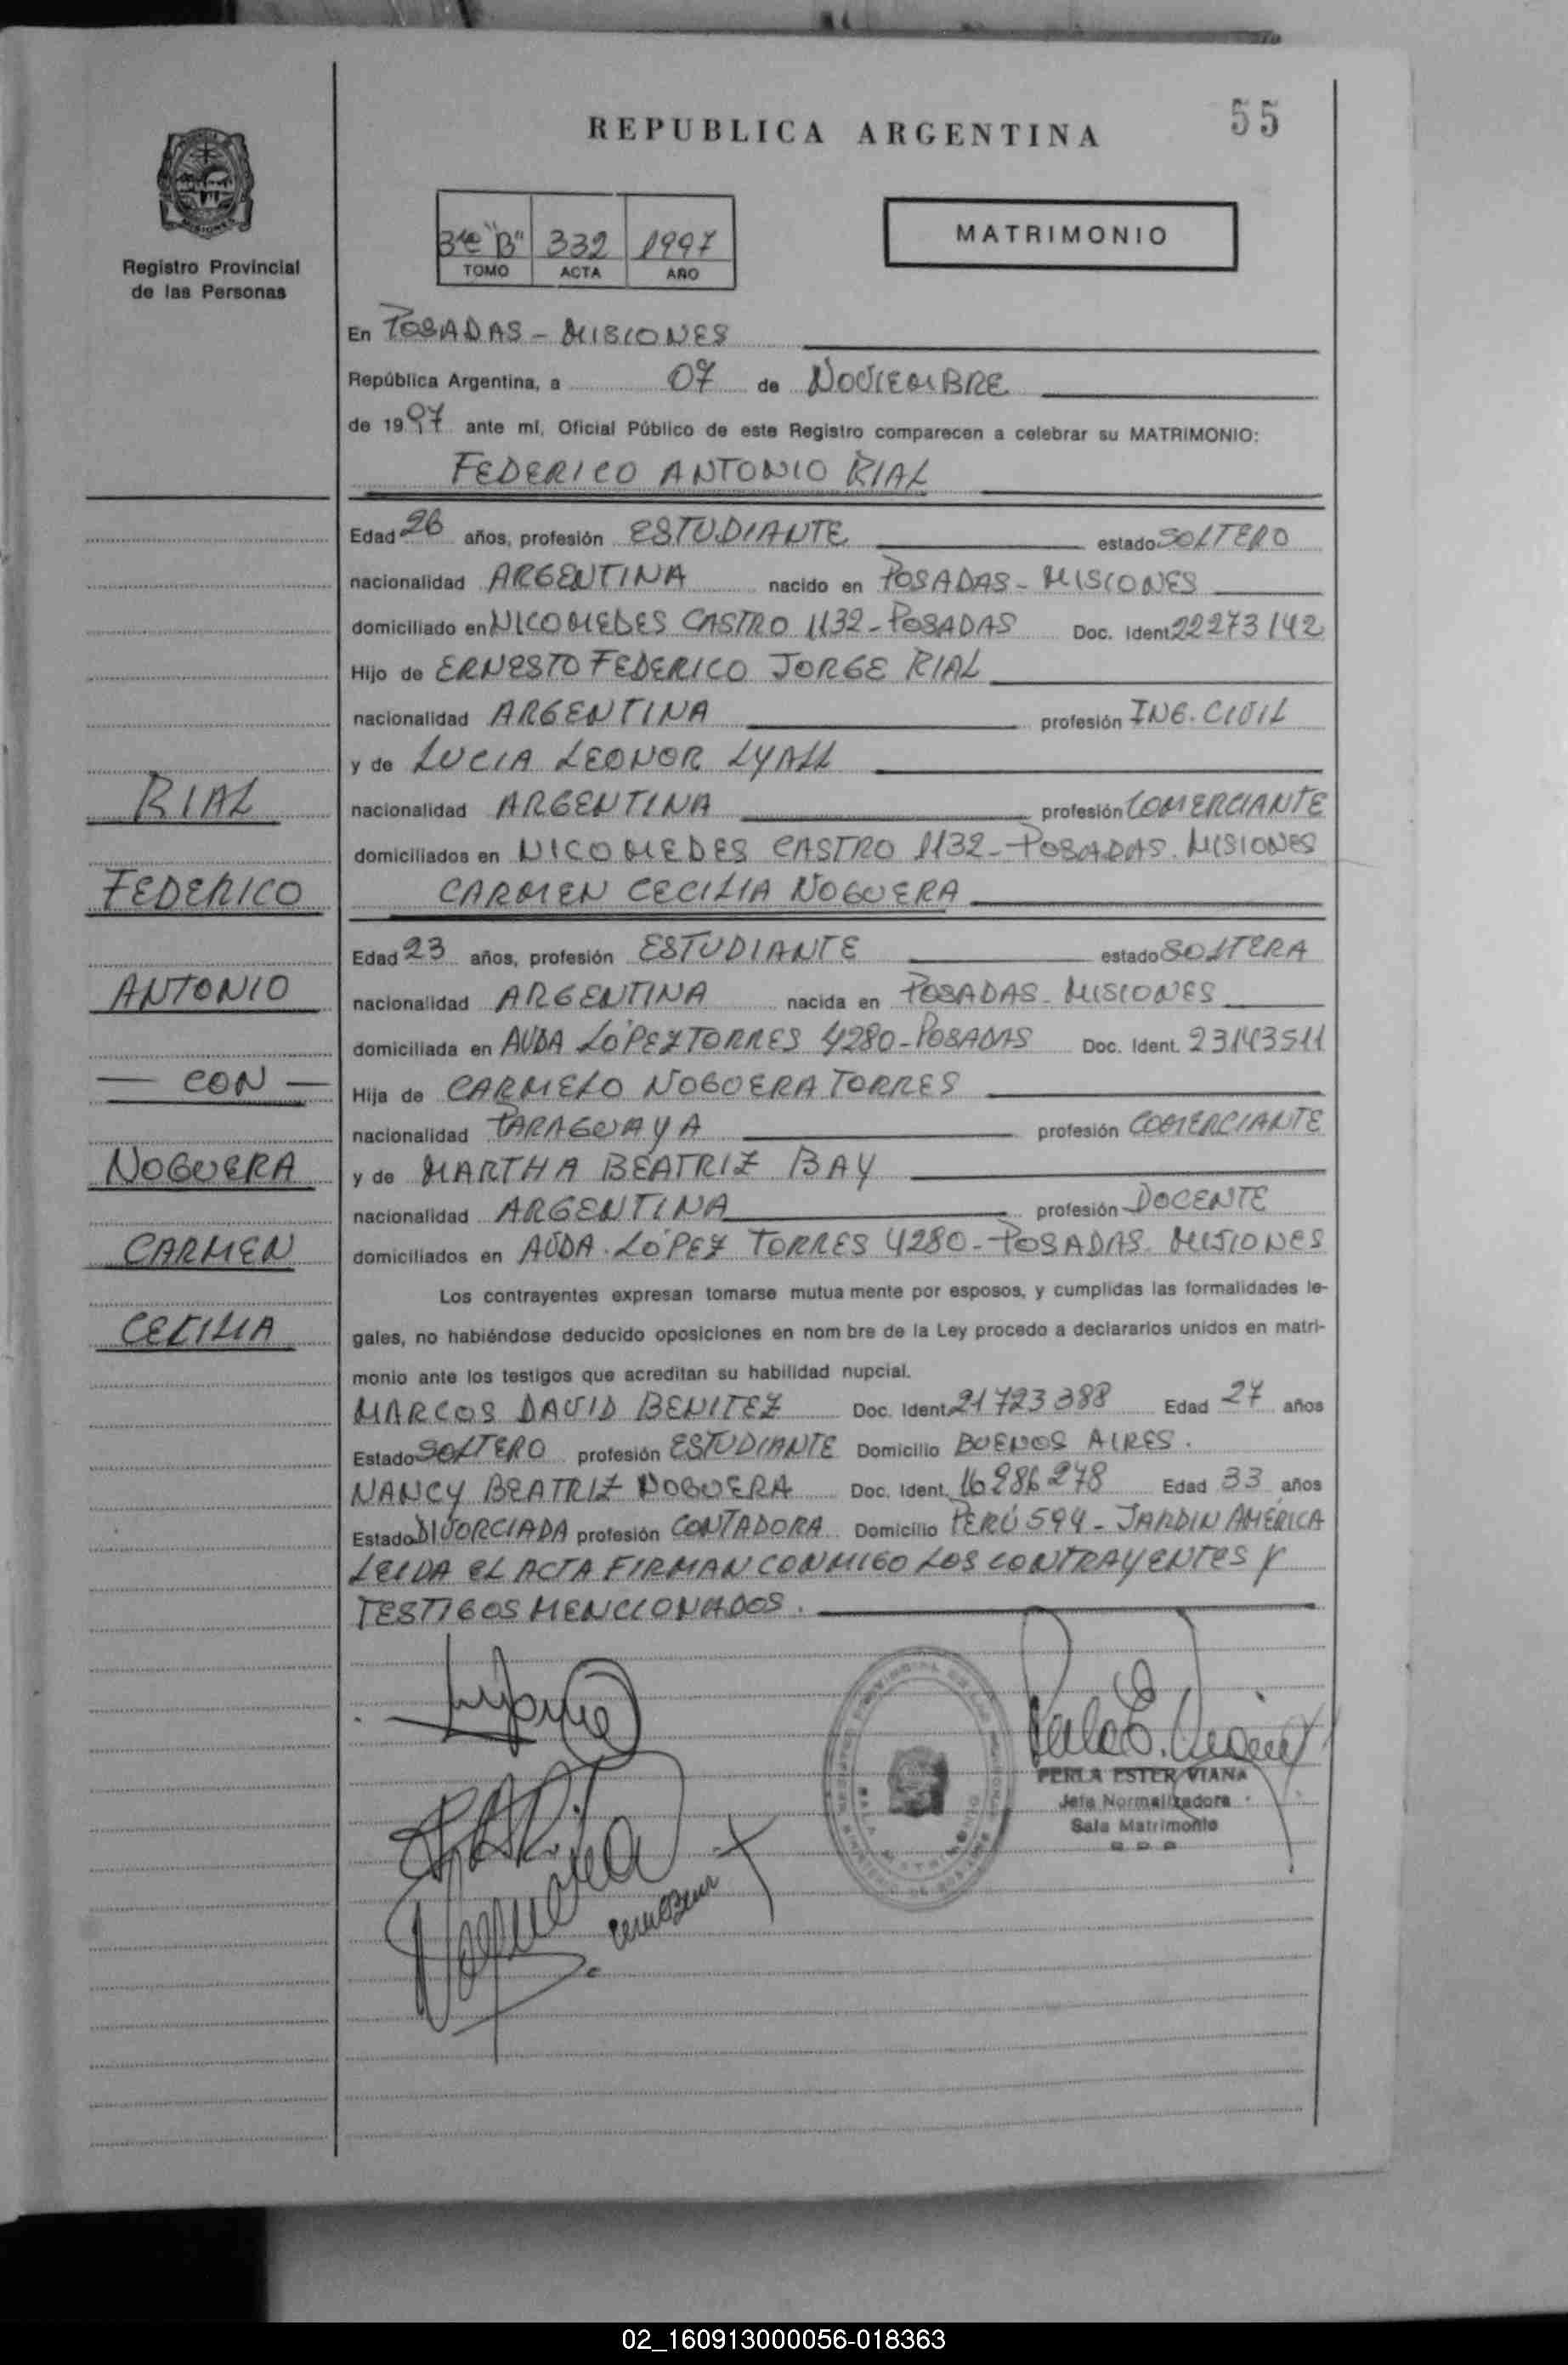 REPUBLICA ARGENTINA
55
Registro Provincial
de las Personas
3ro "B" 332 1997
TOMO ACTA AÑO
MATRIMONIO
En POSADAS - MISIONES
República Argentina, a 07 de NOVIEMBRE
de 1997 ante mí, Oficial Público de este Registro comparecen a celebrar su MATRIMONIO:
FEDERICO ANTONIO RIAL
Edad 26 años, profesión ESTUDIANTE estado SOLTERO
nacionalidad ARGENTINA nacido en POSADAS - MISIONES
domiciliado en NICOMEDES CASTRO 1132 - POSADAS Doc. Ident. 22273142
Hijo de ERNESTO FEDERICO JORGE RIAL
nacionalidad ARGENTINA profesión ING. CIVIL
y de LUCIA LEONOR LYALL
nacionalidad ARGENTINA profesión COMERCIANTE
domiciliados en NICOMEDES CASTRO 1132 - POSADAS. MISIONES
CARMEN CECILIA NOGUERA
Edad 23 años, profesión ESTUDIANTE estado SOLTERA
nacionalidad ARGENTINA nacida en POSADAS - MISIONES
domiciliada en AVDA LÓPEZ TORRES 4280 - POSADAS Doc. Ident. 23143511
Hija de CARMELO NOGUERA TORRES
nacionalidad PARAGUAYA profesión COMERCIANTE
y de MARTHA BEATRIZ BAY
nacionalidad ARGENTINA profesión DOCENTE
domiciliados en AVDA. LÓPEZ TORRES 4280 - POSADAS MISIONES
Los contrayentes expresan tomarse mutua mente por esposos, y cumplidas las formalidades le-
gales, no habiéndose deducido oposiciones en nom bre de la Ley procedo a declararlos unidos en matri-
monio ante los testigos que acreditan su habilidad nupcial.
MARCOS DAVID BENITEZ Doc. Ident. 21723388 Edad 27 años
Estado SOLTERO profesión ESTUDIANTE Domicilio BUENOS AIRES.
NANCY BEATRIZ NOGUERA Doc. Ident. 16986278 Edad 33 años
Estado DIVORCIADA profesión CONTADORA Domicilio PERÚ 594 - JARDIN AMÉRICA
LEIDA EL ACTA FIRMAN CONMIGO LOS CONTRAYENTES Y
TESTIGOS MENCIONADOS.
RIAL
FEDERICO
ANTONIO
— CON —
NOGUERA
CARMEN
CECILIA
PERLA ESTER VIANA
Jefa Normalizadora
Sala Matrimonio
02_160913000056-018363